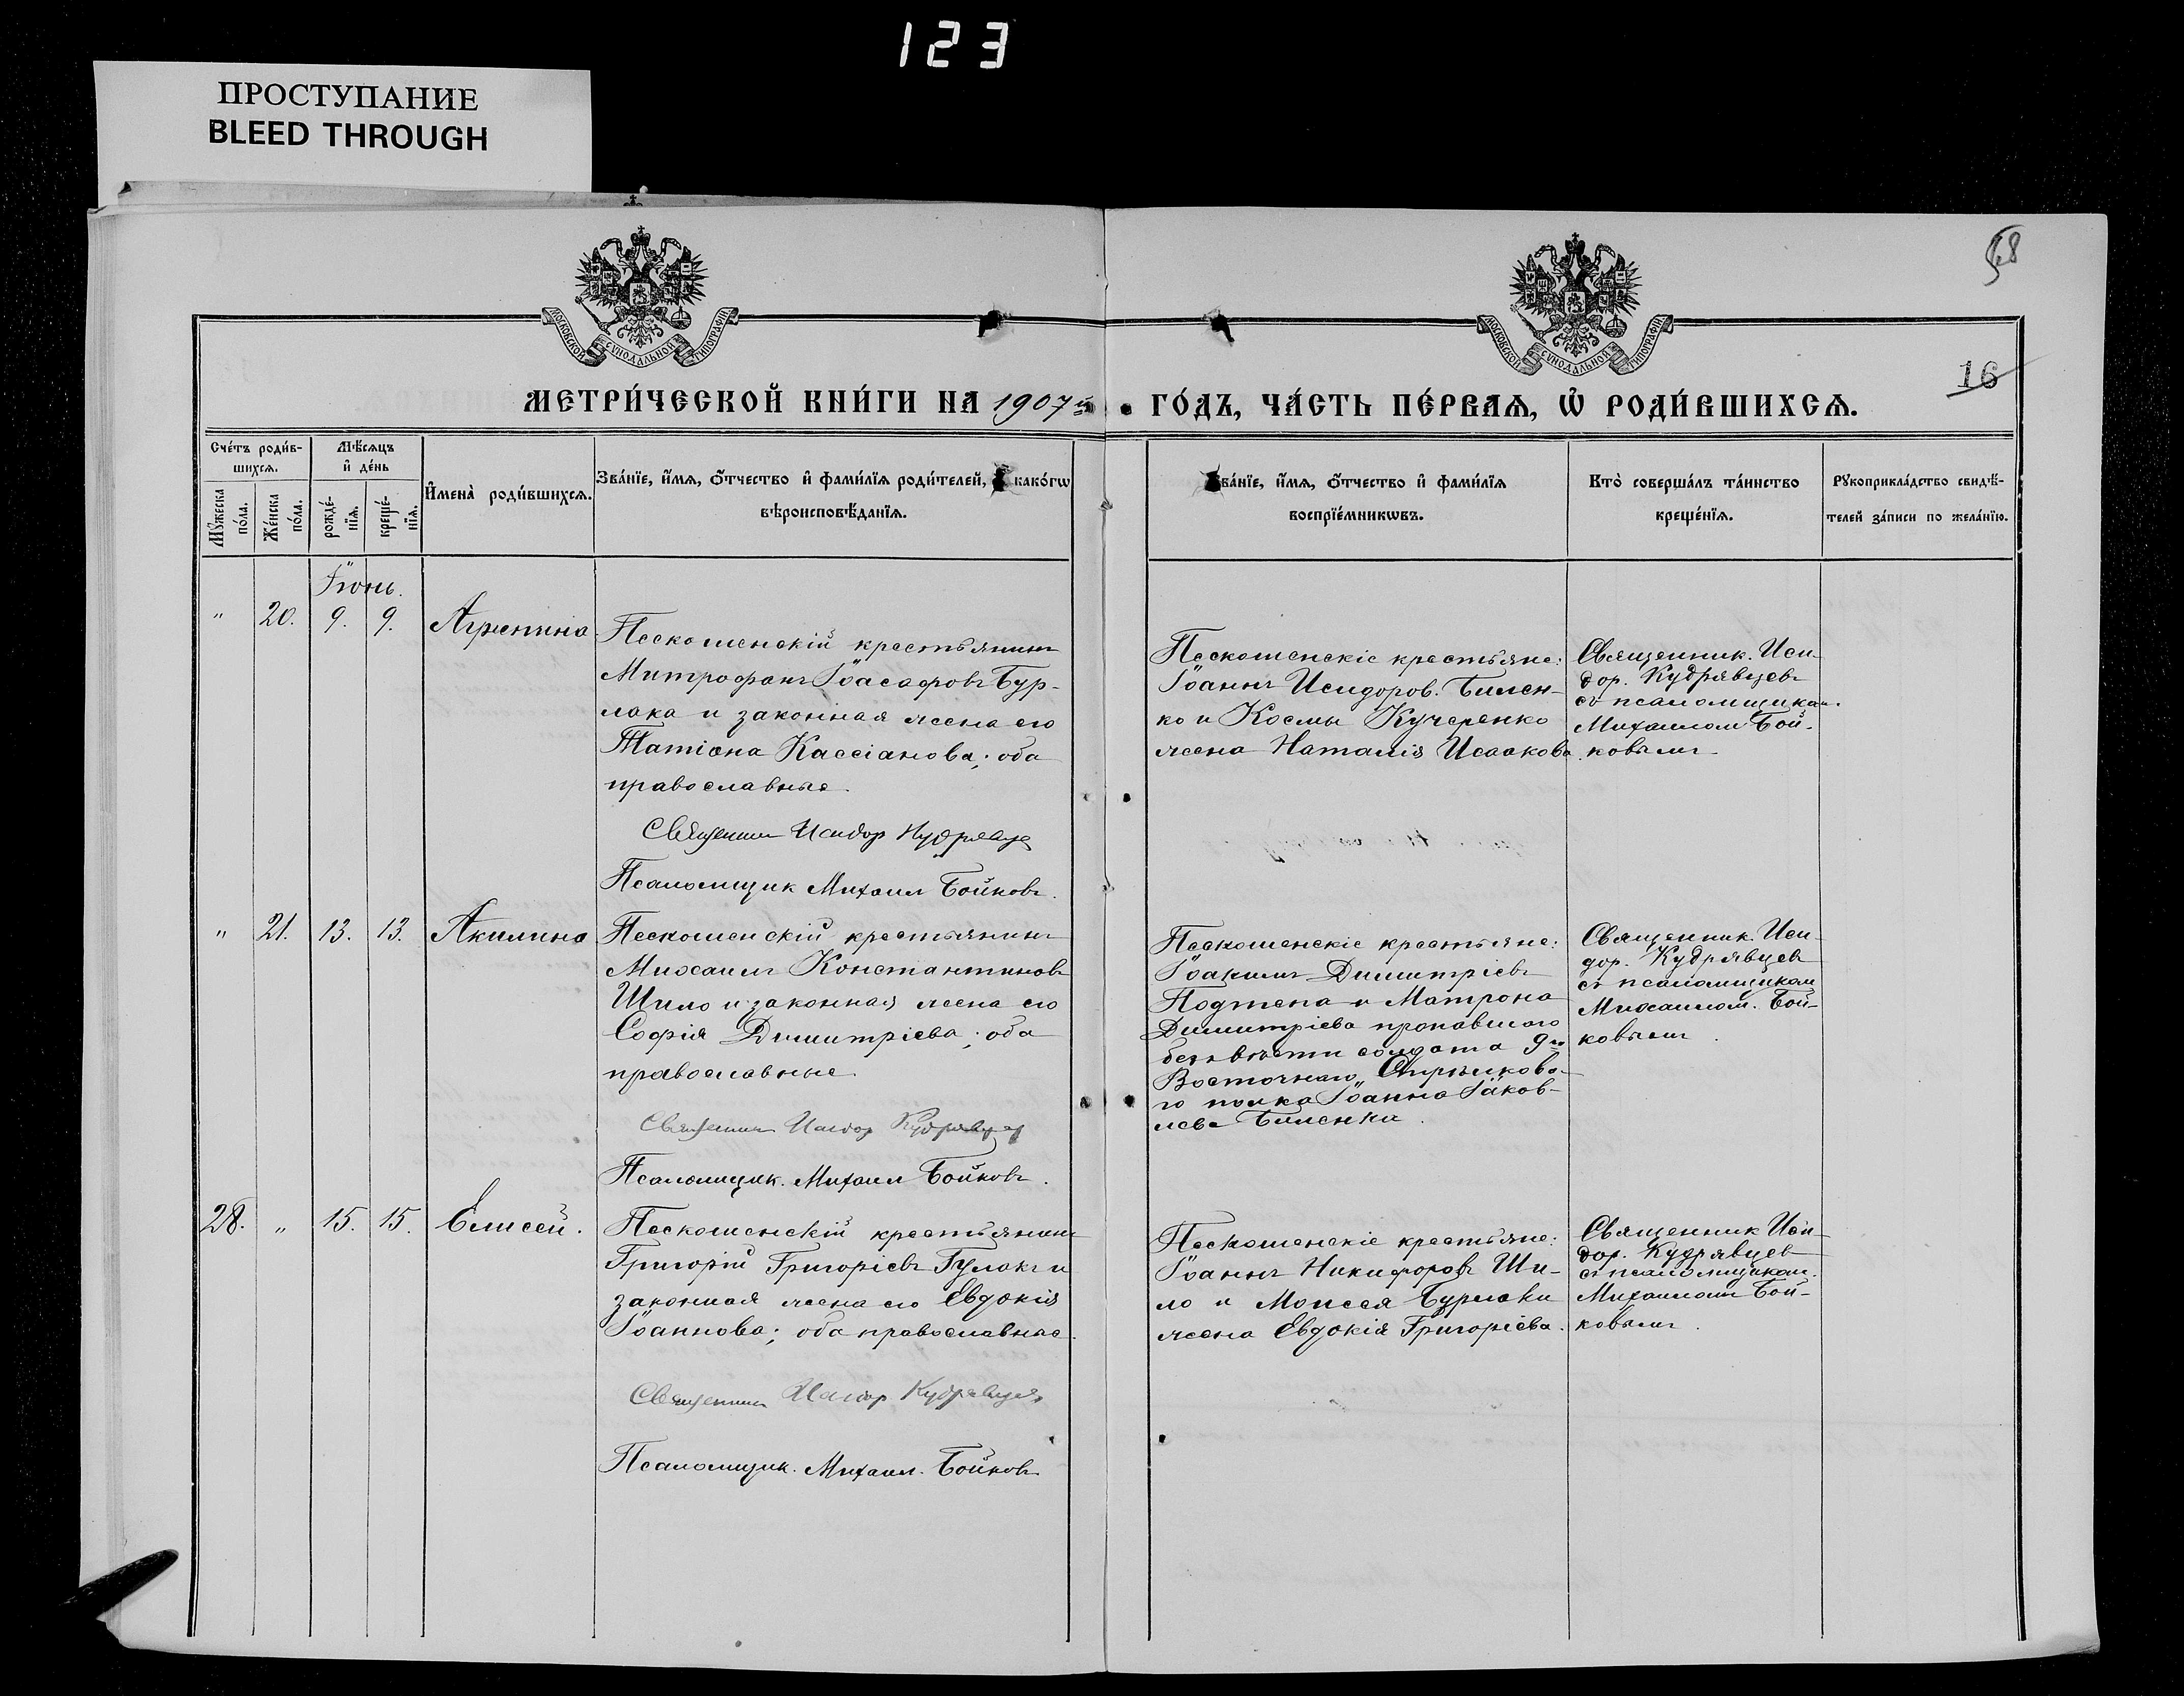 123
ПРОСТУПАНИЕ
BLEED THROUGH
МОСКОВСКОЙ СУНОДАЛЬНОЙ ТИПОГРАФІИ
МОСКОВСКОЙ СУНОДАЛЬНОЙ ТИПОГРАФІИ
16
МЕТРИ́ЧЕСКОЙ КНИ́ГИ НА 1907й
ГО́ДЪ, ЧА́СТЬ ПЕ́РВАѦ, Ѡ РОДИ́ВШИХСѦ.
Сче́тъ роди́в-
шихсѧ.
Мꙋ́жеска по́ла.
Же́нска по́ла.
Мѣ́сѧцъ
и де́нь
рожде́-
нїѧ.
креще́-
нїѧ.
Имена̀ роди́вшихсѧ.
Зва́нїе, и́мѧ, ѻ́тчество и фами́лїѧ роди́телей, како́гѡ
вѣроисповѣ́данїѧ.
ва́нїе, и́мѧ, ѻ́тчество и фами́лїѧ
воспрїе́мникѡвъ.
Кто̀ соверша́лъ та́инство
креще́нїѧ.
Рꙋкоприкла́дство свидѣ́-
телей за́писи по жела́нїю.
Іюнь.
" 20. 9. 9. Агрипина
Пескошенскій крестьянинъ
Митрофанъ Іоасафовъ Бур-
лака и законная жена его
Татіана Кассіанова; оба
православные.
Священник Исидор Кудрявцев
Псаломщик Михаил Бойковъ.
Пескошенскіе крестьяне:
Іоаннъ Исидоров. Билен-
ко и Космы Кучеренко
жена Наталія Исаакова
Священник. Иси-
дор. Кудрявцевъ
съ псаломщиком.
Михаилом Бой-
ковымъ
" 21. 13. 13. Акилина
Пескошенскій крестьянинъ
Михаилъ Константиновъ
Шило и законная жена его
Софія Димитріева; оба
православные.
Священник Исидор Кудрявцев
Псаломщик. Михаил Бойковъ.
Пескошенскіе крестьяне:
Іоакимъ Димитріевъ
и Матрона
Димитріева пропавшаго
безъ вѣсти солдата 9го
Восточнаго Стрѣлково-
го полка Іоанна Іаков-
лева Биленки.
Священник Иси-
дор. Кудрявцев
съ псаломщиком
Михаилом. Бой-
ковымъ.
28. " 15. 15. Елисей.
Пескошенскій крестьянинъ
Григорій Григоріевъ Гулакъ и
законная жена его Евдокія
Іоаннова; оба православные.
Священник Исидор Кудрявцев
Псаломщик. Михаил. Бойковъ
Пескошенскіе крестьяне:
Іоаннъ Никифоровъ Ши-
ло и Моисея Бурлаки
жена Евдокія Григоріева.
Священник Иси-
дор. Кудрявцев
съ псаломщиком.
Михаилом Бой-
ковымъ.